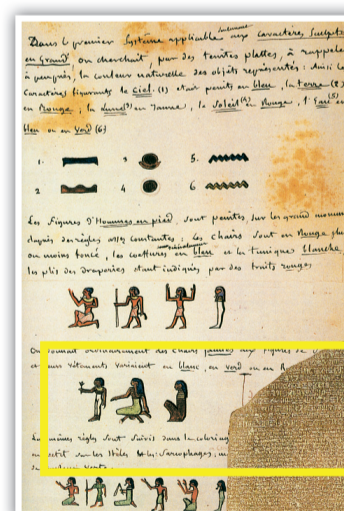 Dans le premier Système applicable seulement aux Caractères Sculptés
en Grand, on cherchait, par des teintes plattes, à rappeler
à peu près, la couleur naturelle des objets représentés: Ainsi les
Caractères figurants le Ciel. (1) étaient peints en bleu, la terre (2)
en Rouge; la Lune (3) en Jaune, le Soleil (4) en Rouge, l'Eau (5) en
bleu ou en Verd (6)
1. 3 5.
2 4 6
Les Figures d'Hommes en pied, sont peintes, sur les grand monum
d'après des règles assez constantes: les chairs sont en Rouge plus
ou moins foncé, les coeffures en bleu et la tunique blanche,
les plis des draperies étant indiqués par des traits rouges
On donnait ordinairement des chairs jaunes aux figures de
et leurs vêtements variaient en blanc, en verd ou en R
Les mêmes règles sont suivies dans le coloriag
en petit sur les Stèles et les Sarcophages;